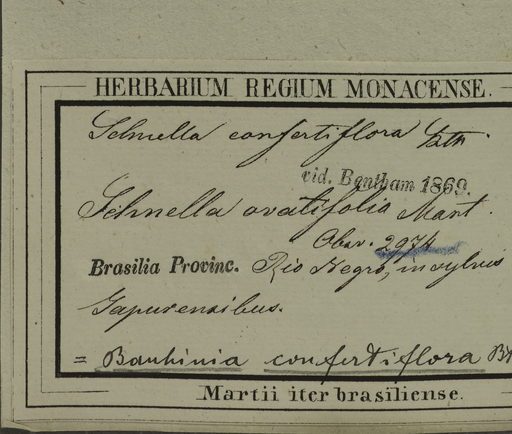 HERBARIUM REGIUM MONACENSE.
Schnella confertiflora Bth
vid. Bentham 1869.
Schnella ovatifolia Mart.
Obsv. 2974
Brasilia Provinc. Rio Negro, in sylvis
Japurensibus.
= Bauhinia confertiflora Bth
Martii iter brasiliense.